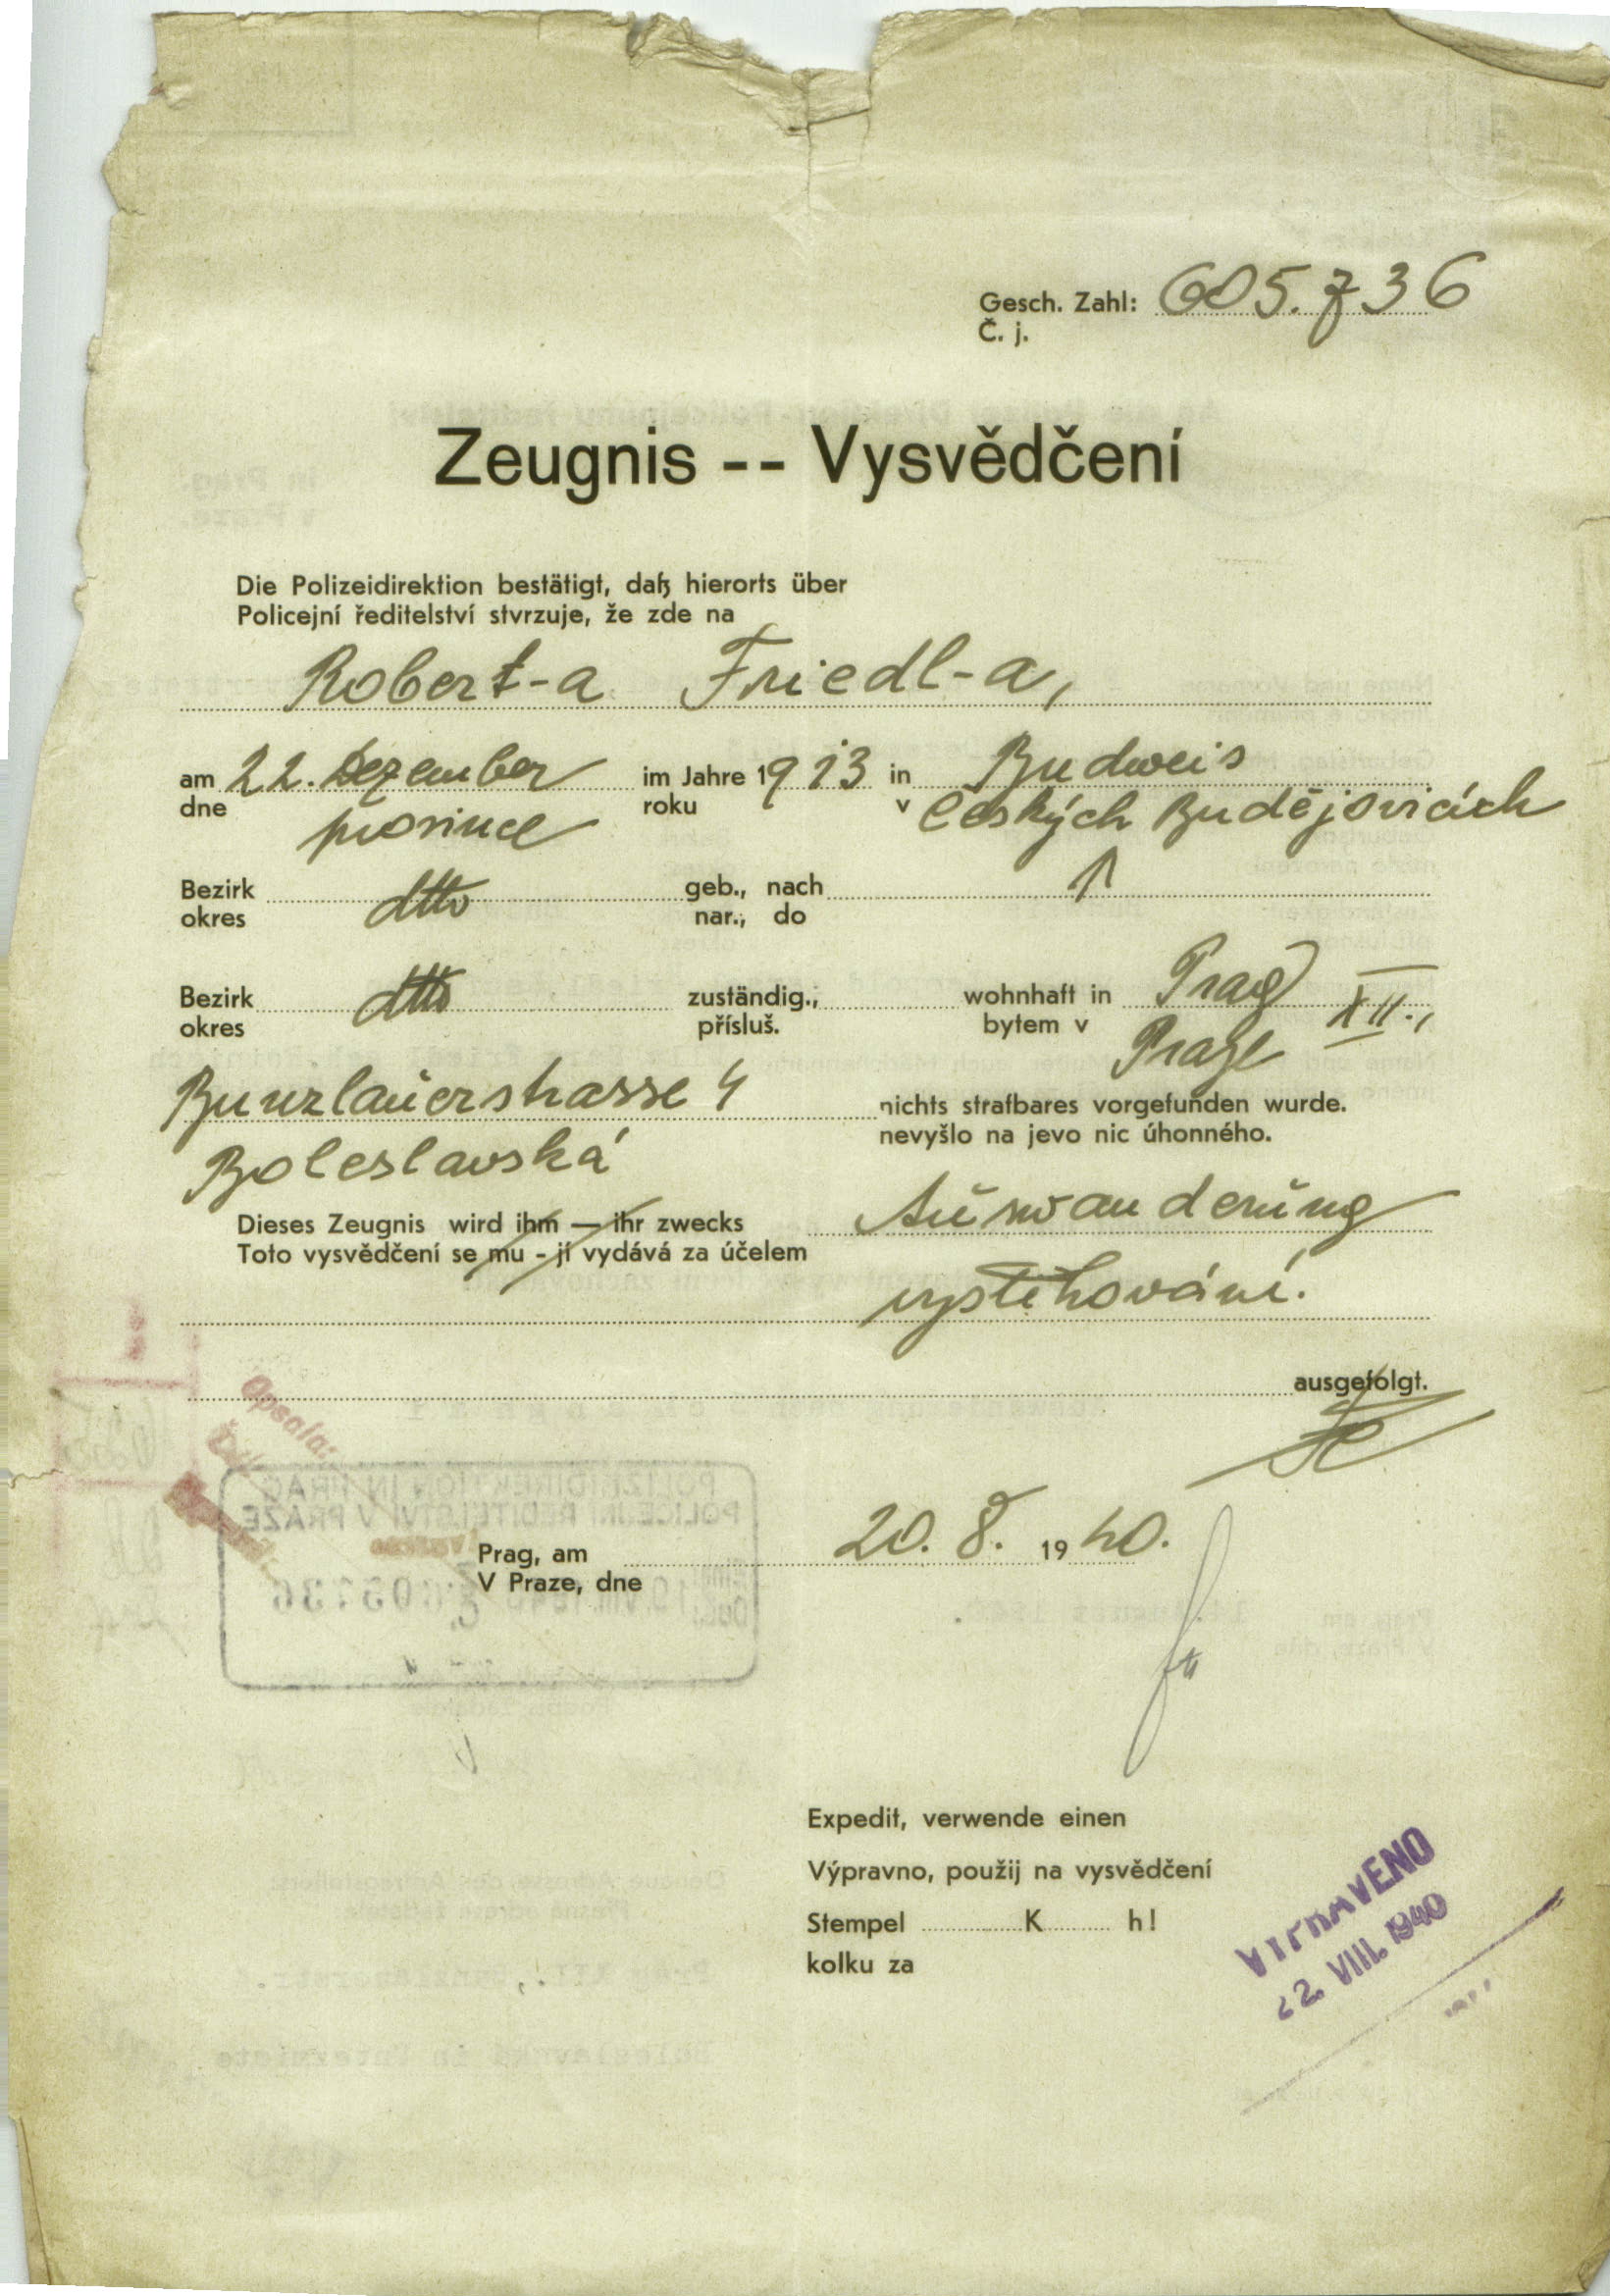 Gesch. Zahl: 605.736
Č. j.
Zeugnis -- Vysvědčení
Die Polizeidirektion bestätigt, daß hierorts über
Policejní ředitelství stvrzuje, že zde na
Robert-a Friedl-a,
am 22. Dezember im Jahre 1913 in Budweis
dne prosince roku v Českých Budějovicích
Bezirk dtto geb., nach
okres nar., do
Bezirk dtto zuständig., wohnhaft in Prag XII.,
okres přísluš. bytem v Praze
Bunzlauerstrasse 4 nichts strafbares vorgefunden wurde.
Boleslavská nevyšlo na jevo nic úhonného.
Dieses Zeugnis wird ihm — ihr zwecks Auswanderung
Toto vysvědčení se mu - jí vydává za účelem
vystěhování.
ausgefolgt.
POLIZEIDIREKTION IN PRAG
POLICEJNÍ ŘEDITELSTVÍ V PRAZE
Prag, am 20. 8. 1940.
V Praze, dne
19. VIII. 1940 605736
Expedit, verwende einen
Výpravno, použij na vysvědčení
Stempel K h!
kolku za
VYPRAVENO
22. VIII. 1940